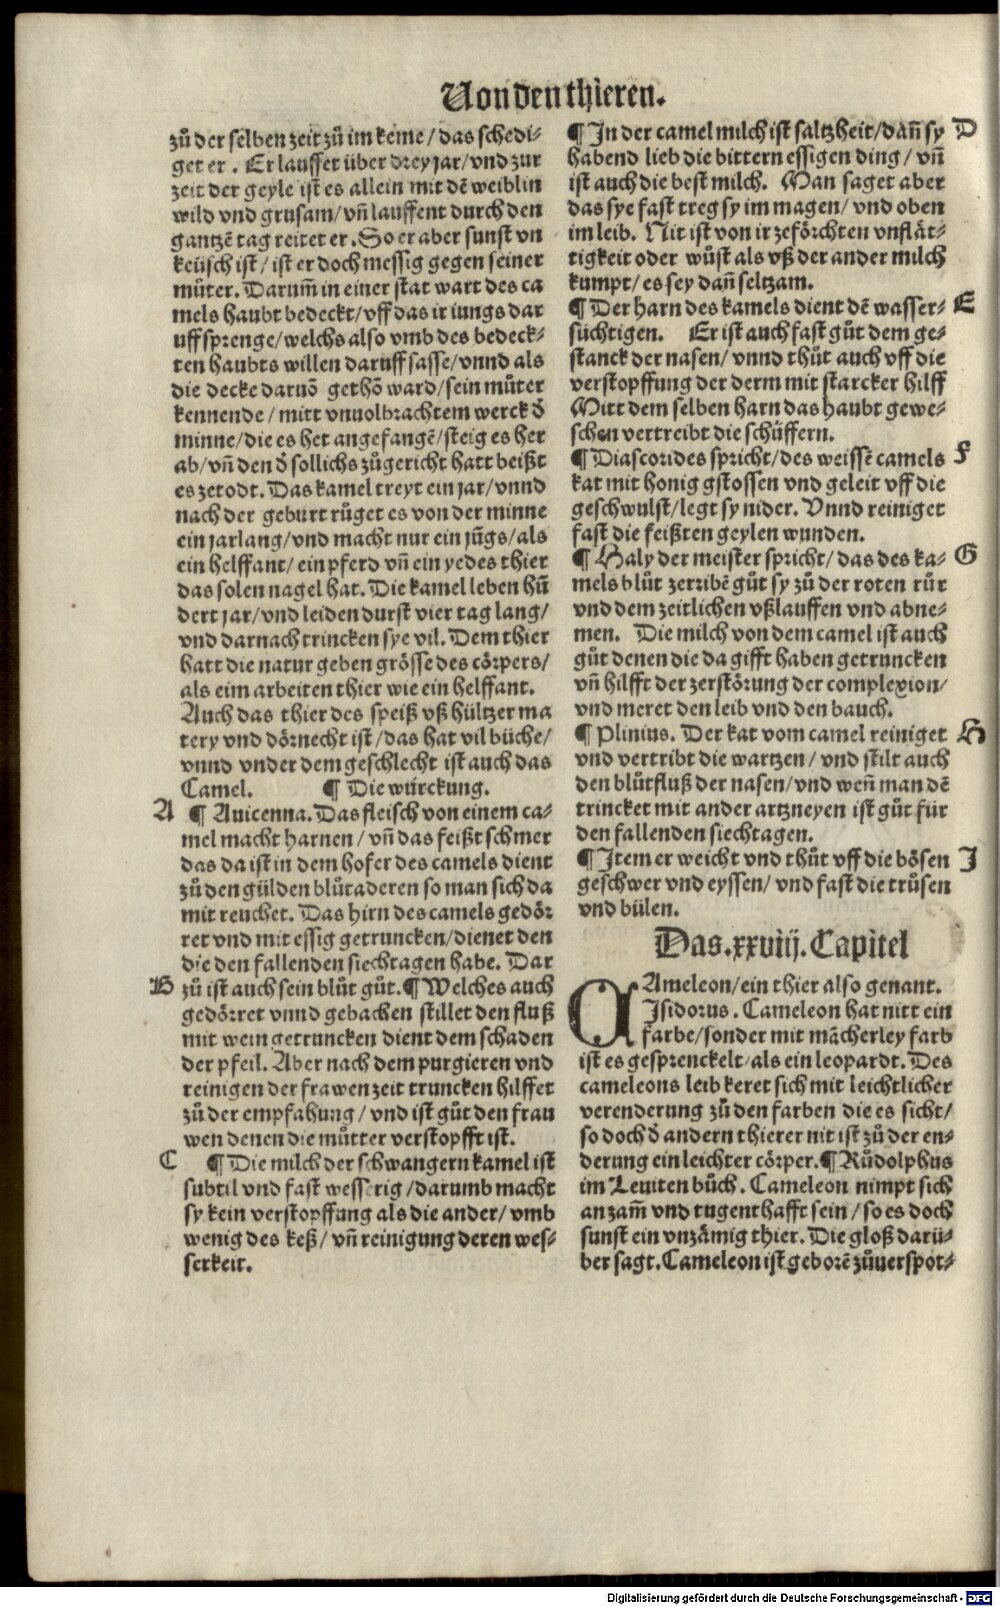 Von den thieren.
zů der selben zeit zů im keme/ das schedi⸗
get er. Er lauffet über drey jar/ vnd zur
zeit der geyle ist es allein mit dē weiblin
wild vnd grusam/ vñ lauffent durch den
gantzē tag reitet er. So er aber sunst vn
keüsch ist/ ist er doch messig gegen seiner
můter. Darum̃ in einer stat wart des ca
mels haubt bedeckt/ vff das ir iungs dar
uff sprenge/ welchs also vmb des bedeck⸗
ten haubts willen daruff sasse/ vnnd als
die decke daruō gethō ward/ sein můter
kennende/ mitt vnuolbrachtem werck d̄
minne/ die es het angefangē/ steig es her
ab/ vñ den d̄ sollichs zůgericht hatt beißt
es ze todt. Das kamel treyt ein jar/ vnnd
nach der geburt růget es von der minne
ein jarlang/ vnd macht nur ein jũgs/ als
ein helffant/ ein pferd vñ ein yedes thier
das solen nagel hat. Die kamel leben hũ
dert jar/ vnd leiden durst vier tag lang/
vnd darnach trincken sye vil. Dem thier
hatt die natur geben grösse des cörpers/
als eim arbeiten thier wie ein helffant.
Auch das thier des speiß vß hültzer ma
tery vnd dörnecht ist/ das hat vil büche/
vnnd vnder dem geschlecht ist auch das
Camel. ¶ Die würckung.
A ¶ Auicenna. Das fleisch von einem ca⸗
mel macht harnen/ vñ das feißt schmer
das da ist in dem hofer des camels dient
zů den gülden blůtaderen so man sich da
mit reuchet. Das hirn des camels gedör
ret vnd mit essig getruncken/ dienet den
die den fallenden siechtagen habe. Dar
B zů ist auch sein blůt gůt. ¶ Welches auch
gedörret vnnd gebachen stillet den fluß
mit wein getruncken dient dem schaden
der pfeil. Aber nach dem purgieren vnd
reinigen der frawen zeit truncken hilffet
zů der empfahung/ vnd ist gůt den frau
wen denen die můtter verstopfft ist.
C ¶ Die milch der schwangern kamel ist
subtil vnd fast wesserig/ darumb macht
sy kein verstopffung als die ander/ vmb
wenig des keß/ vñ reinigung deren wes⸗
serkeit.
¶ In der camel milch ist saltzheit/ dañ sy D
habend lieb die bittern essigen ding/ vñ
ist auch die best milch. Man saget aber
das sye fast treg sy im magen/ vnd oben
im leib. Nit ist von ir ze förchten vnflät⸗
tigkeit oder wůst als vß der ander milch
kumpt/ es sey dañ seltzam.
¶ Der harn des kamels dient dē wasser⸗ E
süchtigen. Er ist auch fast gůt dem ge⸗
stanck der nasen/ vnnd thůt auch vff die
verstopffung der derm mit starcker hilff
Mitt dem selben harn das haubt gewe⸗
schen vertreibt die schüffern.
¶ Diascorides spricht/ des weissē camels F
kat mit honig gstossen vnd geleit vff die
geschwulst/ legt sy nider. Vnnd reiniget
fast die feißten geylen wunden.
¶ Haly der meister spricht/ das des ka⸗ G
mels blůt zerribē gůt sy zů der roten růr
vnd dem zeitlichen vßlauffen vnd abne⸗
men. Die milch von dem camel ist auch
gůt denen die da gifft haben getruncken
vñ hilfft der zerstörung der complexion/
vnd meret den leib vnd den bauch.
¶ Plinius. Der kat vom camel reiniget H
vnd vertribt die wartzen/ vnd stilt auch
den blůtfluß der nasen/ vnd weñ man dē
trincket mit ander artzneyen ist gůt für
den fallenden siechtagen.
¶ Item er weicht vnd thůt vff die bösen I
geschwer vnd eyssen/ vnd fast die trůsen
vnd bülen.
Das .xxviij. Capitel
CAmeleon/ ein thier also genant.
Isidorus. Cameleon hat nitt ein
farbe/ sonder mit mãcherley farb
ist es gesprenckelt/ als ein leopardt. Des
cameleons leib keret sich mit leichtlicher
verenderung zů den farben die es sicht/
so doch d̄ andern thierer nit ist zů der en⸗
derung ein leichter cörper. ¶ Růdolphus
im Leuiten bůch. Cameleon nimpt sich
an zam̃ vnd tugenthafft sein/ so es doch
sunst ein vnzämig thier. Die gloß darü⸗
ber sagt. Cameleon ist geborē zů uerspot⸗
Digitalisierung gefördert durch die Deutsche Forschungsgemeinschaft - DFG